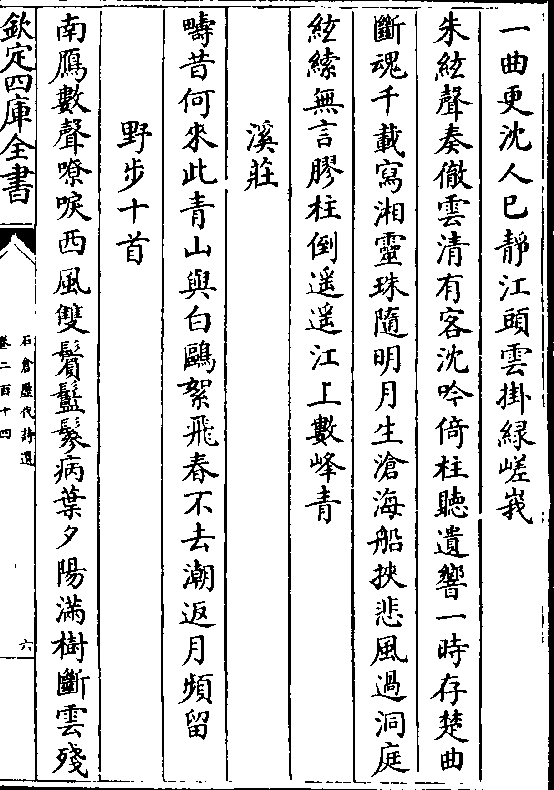 一曲更沈人已靜江頭雲掛緑嵯峩
朱絃聲奏徹雲清有客沈吟倚柱聽遺響一時存楚曲
斷魂千載寫湘靈珠隨明月生滄海船挾悲風過洞庭
絃緣無言膠柱倒遥遥江上數峰青
溪莊
疇昔何來此青山與白鷗絮飛春不去潮返月頻留
野步十首
南鴈數聲嘹唳西風雙鬢鬖病葉夕陽滿樹斷雲殘
欽定四庫全書
石倉歷代詩選
卷二百十四
六